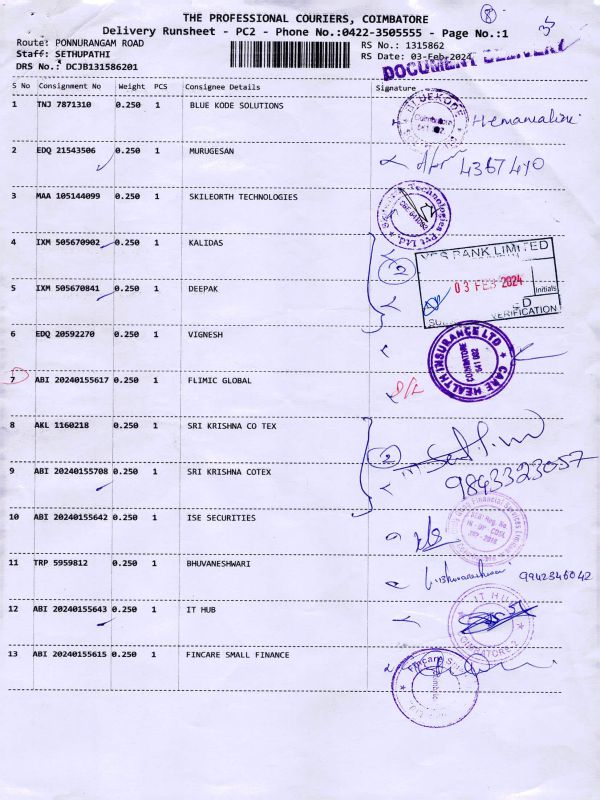 THE PROFESSIONAL COURIERS, COIMBATORE
8
Delivery Runsheet - PC2 - Phone No.:0422-3505555 - Page No.:1
Route: PONNURANGAM ROAD
RS No.: 1315862
Staff: SETHUPATHI
RS Date: 03-Feb-2024
DRS No.: DCJB131586201
DOCUMENT DELIVERY
S No Consignment No Weight PCS Consignee Details Signature
1 TNJ 7871310 0.250 1 BLUE KODE SOLUTIONS
BLUEKODE
Coimbatore
2 EDQ 21543506 0.250 1 MURUGESAN
4367410
3 MAA 105144099 0.250 1 SKILEORTH TECHNOLOGIES
Technologies Pvt Ltd.
4 IXM 505670902 0.250 1 KALIDAS
2
YES BANK LIMITED
03 FEB 2024
Initials
VERIFICATION
5 IXM 505670841 0.250 1 DEEPAK
6 EDQ 20592270 0.250 1 VIGNESH
CARE HEALTH INSURANCE LTD
COIMBATORE
641 002
7 ABI 20240155617 0.250 1 FLIMIC GLOBAL
8 AKL 1160218 0.250 1 SRI KRISHNA CO TEX
2
9 ABI 20240155708 0.250 1 SRI KRISHNA COTEX
9843323057
10 ABI 20240155642 0.250 1 ISE SECURITIES
Financial Services
SEBI Reg. No.
IN - DP - CDSL
11 TRP 5959812 0.250 1 BHUVANESHWARI
9942346042
12 ABI 20240155643 0.250 1 IT HUB
IT HUB
13 ABI 20240155615 0.250 1 FINCARE SMALL FINANCE
FinCare